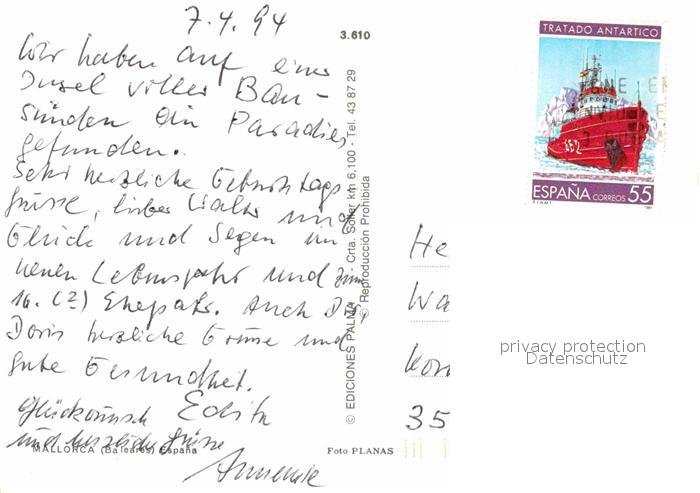 7.4.94
Wir haben auf einer
Insel voller Bau-
sünden ein Paradies
gefunden.
Sehr herzliche Geburtstags
grüsse, lieber Walter und
Glück und Segen im
neuen Lebensjahr und zum
16. (?) Ehejahr. Auch Dir,
Doris herzliche Grüsse und
gute Gesundheit.
Glückwunsch Edith
und herzliche Grüsse
Annemarie
MALLORCA (Baleares) España
Foto PLANAS
3.610
© EDICIONES PALMA - Crta. Soller km 6,100 - Tel. 43 87 29
© Reproducción Prohibida
TRATADO ANTARTICO
ESPAÑA CORREOS 55
He
Wa
35
privacy protection
Datenschutz